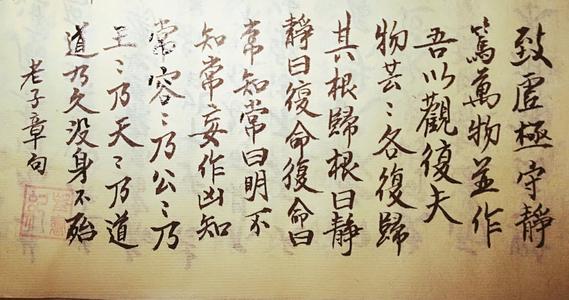 致虛極守靜
篤萬物並作
吾以觀復夫
物芸〻各復歸
其根歸根曰靜
靜曰復命復命曰
常知常曰明不
知常妄作凶知
常容〻乃公〻乃
王〻乃天〻乃道
道乃久没身不殆
老子章句